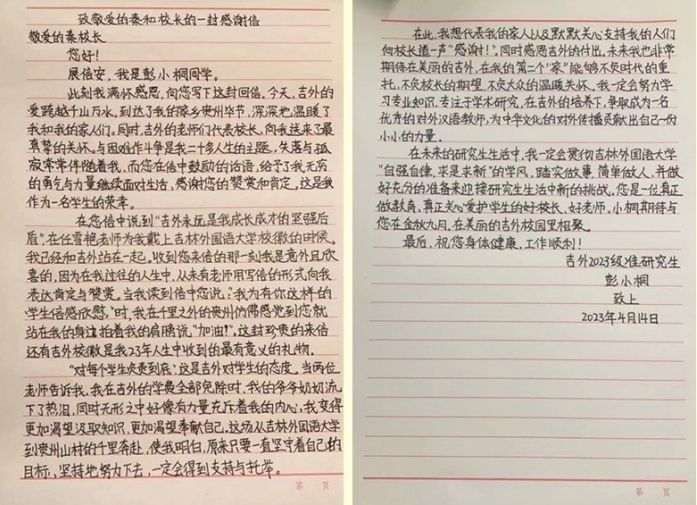 致敬爱的秦和校长的一封感谢信
敬爱的秦校长
您好!
展信安,我是彭小桐同学。
此刻我满怀感恩,向您写下这封回信,今天,吉外的
爱跨越千山万水,到达了我的家乡贵州毕节,深深地温暖了
我和我的家人们。同时,吉外的老师们代表校长,向我送来了最
真挚的关怀。与困难作斗争是我二十多年人生的主题,失落与孤
寂常常伴随着我,而您在信中鼓励的话语,给予了我无穷
的勇气与力量继续面对生活,感谢您的赞赏和肯定,这是我
作为一名学生的荣幸。
在您信中说到“吉外永远是我成长成才的坚强后
盾”,在任雪艳老师为我戴上吉林外国语大学校徽的时候,
我已经和吉外站在一起。收到您来信的那一刻我是意外且欣
喜的,因为在我过往的人生中,从未有老师用写信的形式向我
表达肯定与赞赏。当我读到信中您说:“我为有你这样的
学生倍感欣慰,”时,我在千里之外的贵州仿佛感觉到您就
站在我的身边拍着我的肩膀说“加油!”,这封珍贵的来信
还有吉外校徽是我23年人生中收到的最有意义的礼物。
“对每个学生负责到底”这是吉外对学生的态度。当两位
老师告诉我,我在吉外的学费全部免除时,我的爷爷奶奶流
下了热泪,同时无形之中好像有力量充斥着我的内心,我变得
更加渴望汲取知识,更加渴望奉献自己。这场从吉林外国语大学
到贵州山村的千里奔赴,使我明白,原来只要一直坚守着自己的
目标,坚持地努力下去,一定会得到支持与托举。
第 页
在此,我想代表我的家人以及默默关心支持我的人们
向校长道一声“感谢!”,同时感恩吉外的付出。未来我也非常
期待在美丽的吉外,在我的第二个“家”能够不负时代的重
托,不负校长的期望,不负大众的温暖关怀。我一定会努力学
习专业知识,专注于学术研究,在吉外的培养下,争取成为一名
优秀的对外汉语教师,为中华文化的对外传播贡献出自己一份
小小的力量。
在未来的研究生生活中,我一定会贯彻吉林外国语大学
“自强自律,求是求新”的学风,踏实做事,简单做人,并做
好充分的准备来迎接研究生生活中新的挑战。您是一位真正
做教育,真正关心爱护学生的好校长、好老师。小桐期待与
您在金秋九月,在美丽的吉外校园里相聚。
最后,祝您身体健康,工作顺利!
吉外2023级准研究生
彭小桐
致上
2023年4月14日
第 页